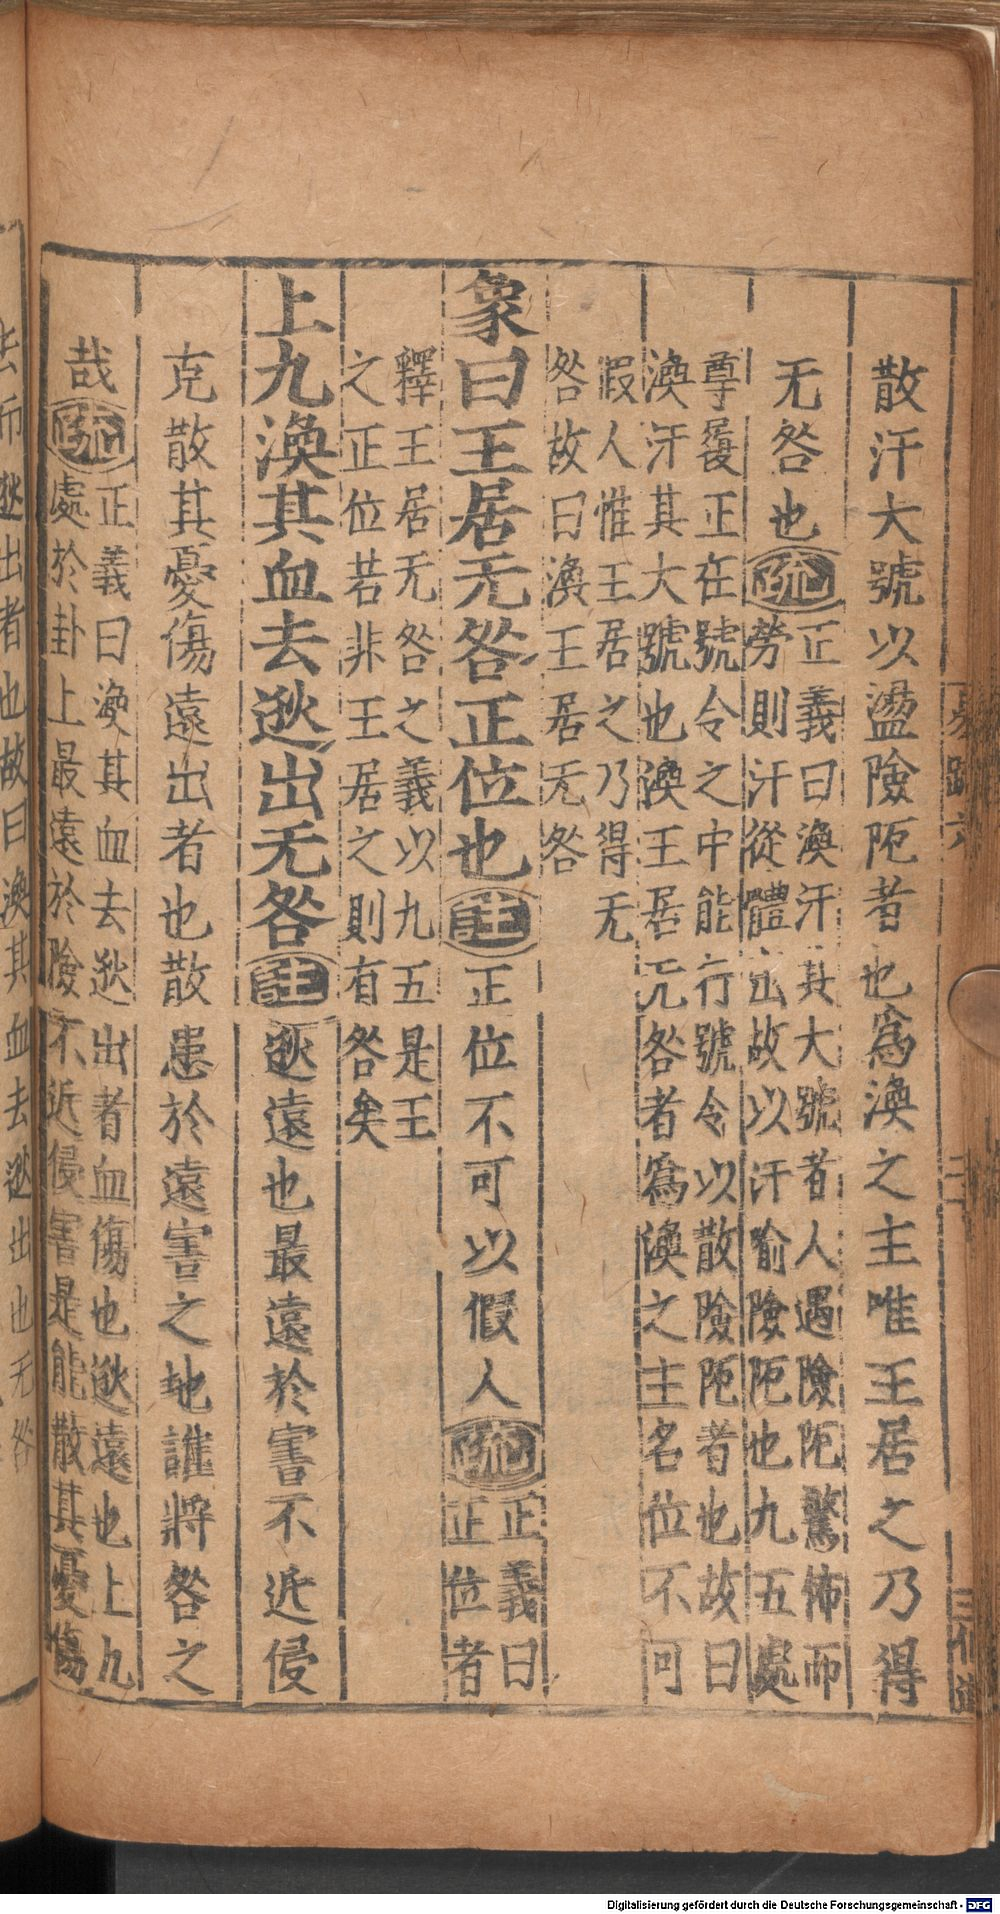 散汗大號以盪險阨者也爲渙之主唯王居之乃得
无咎也
疏
正義曰渙汗其大號者人遇險阨驚怖而
勞則汗從體出故以汗喻險阨也九五處
尊履正在號令之中能行號令以散險阨者也故曰
渙汗其大號也渙王居无咎者爲渙之主名位不可
假人惟王居之乃得无
咎故曰渙王居无咎
象曰王居无咎正位也
註
正位不可以假人
疏
正義曰
正位者
釋王居无咎之義以九五是王
之正位若非王居之則有咎矣
上九渙其血去逖出无咎
註
逖遠也最遠於害不近侵
克散其憂傷遠出者也散患於遠害之地誰將咎之
哉
疏
正義曰渙其血去逖出者血傷也逖遠也上九
處於卦上最遠於險不近侵害是能散其憂傷
去而逖出者也故曰渙其血去逖出也无咎
Digitalisierung gefördert durch die Deutsche Forschungsgemeinschaft - DFG